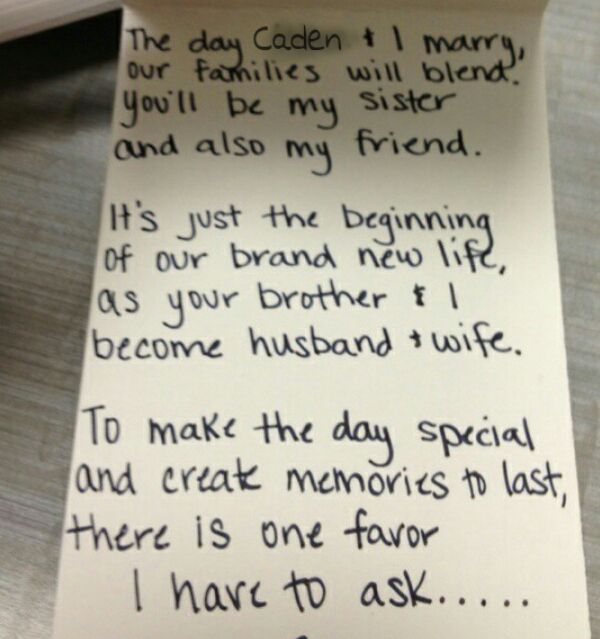 The day Caden & I marry,
our families will blend.
You'll be my sister
and also my friend.
It's just the beginning
of our brand new life,
as your brother & I
become husband & wife.
To make the day special
and create memories to last,
there is one favor
I have to ask.....